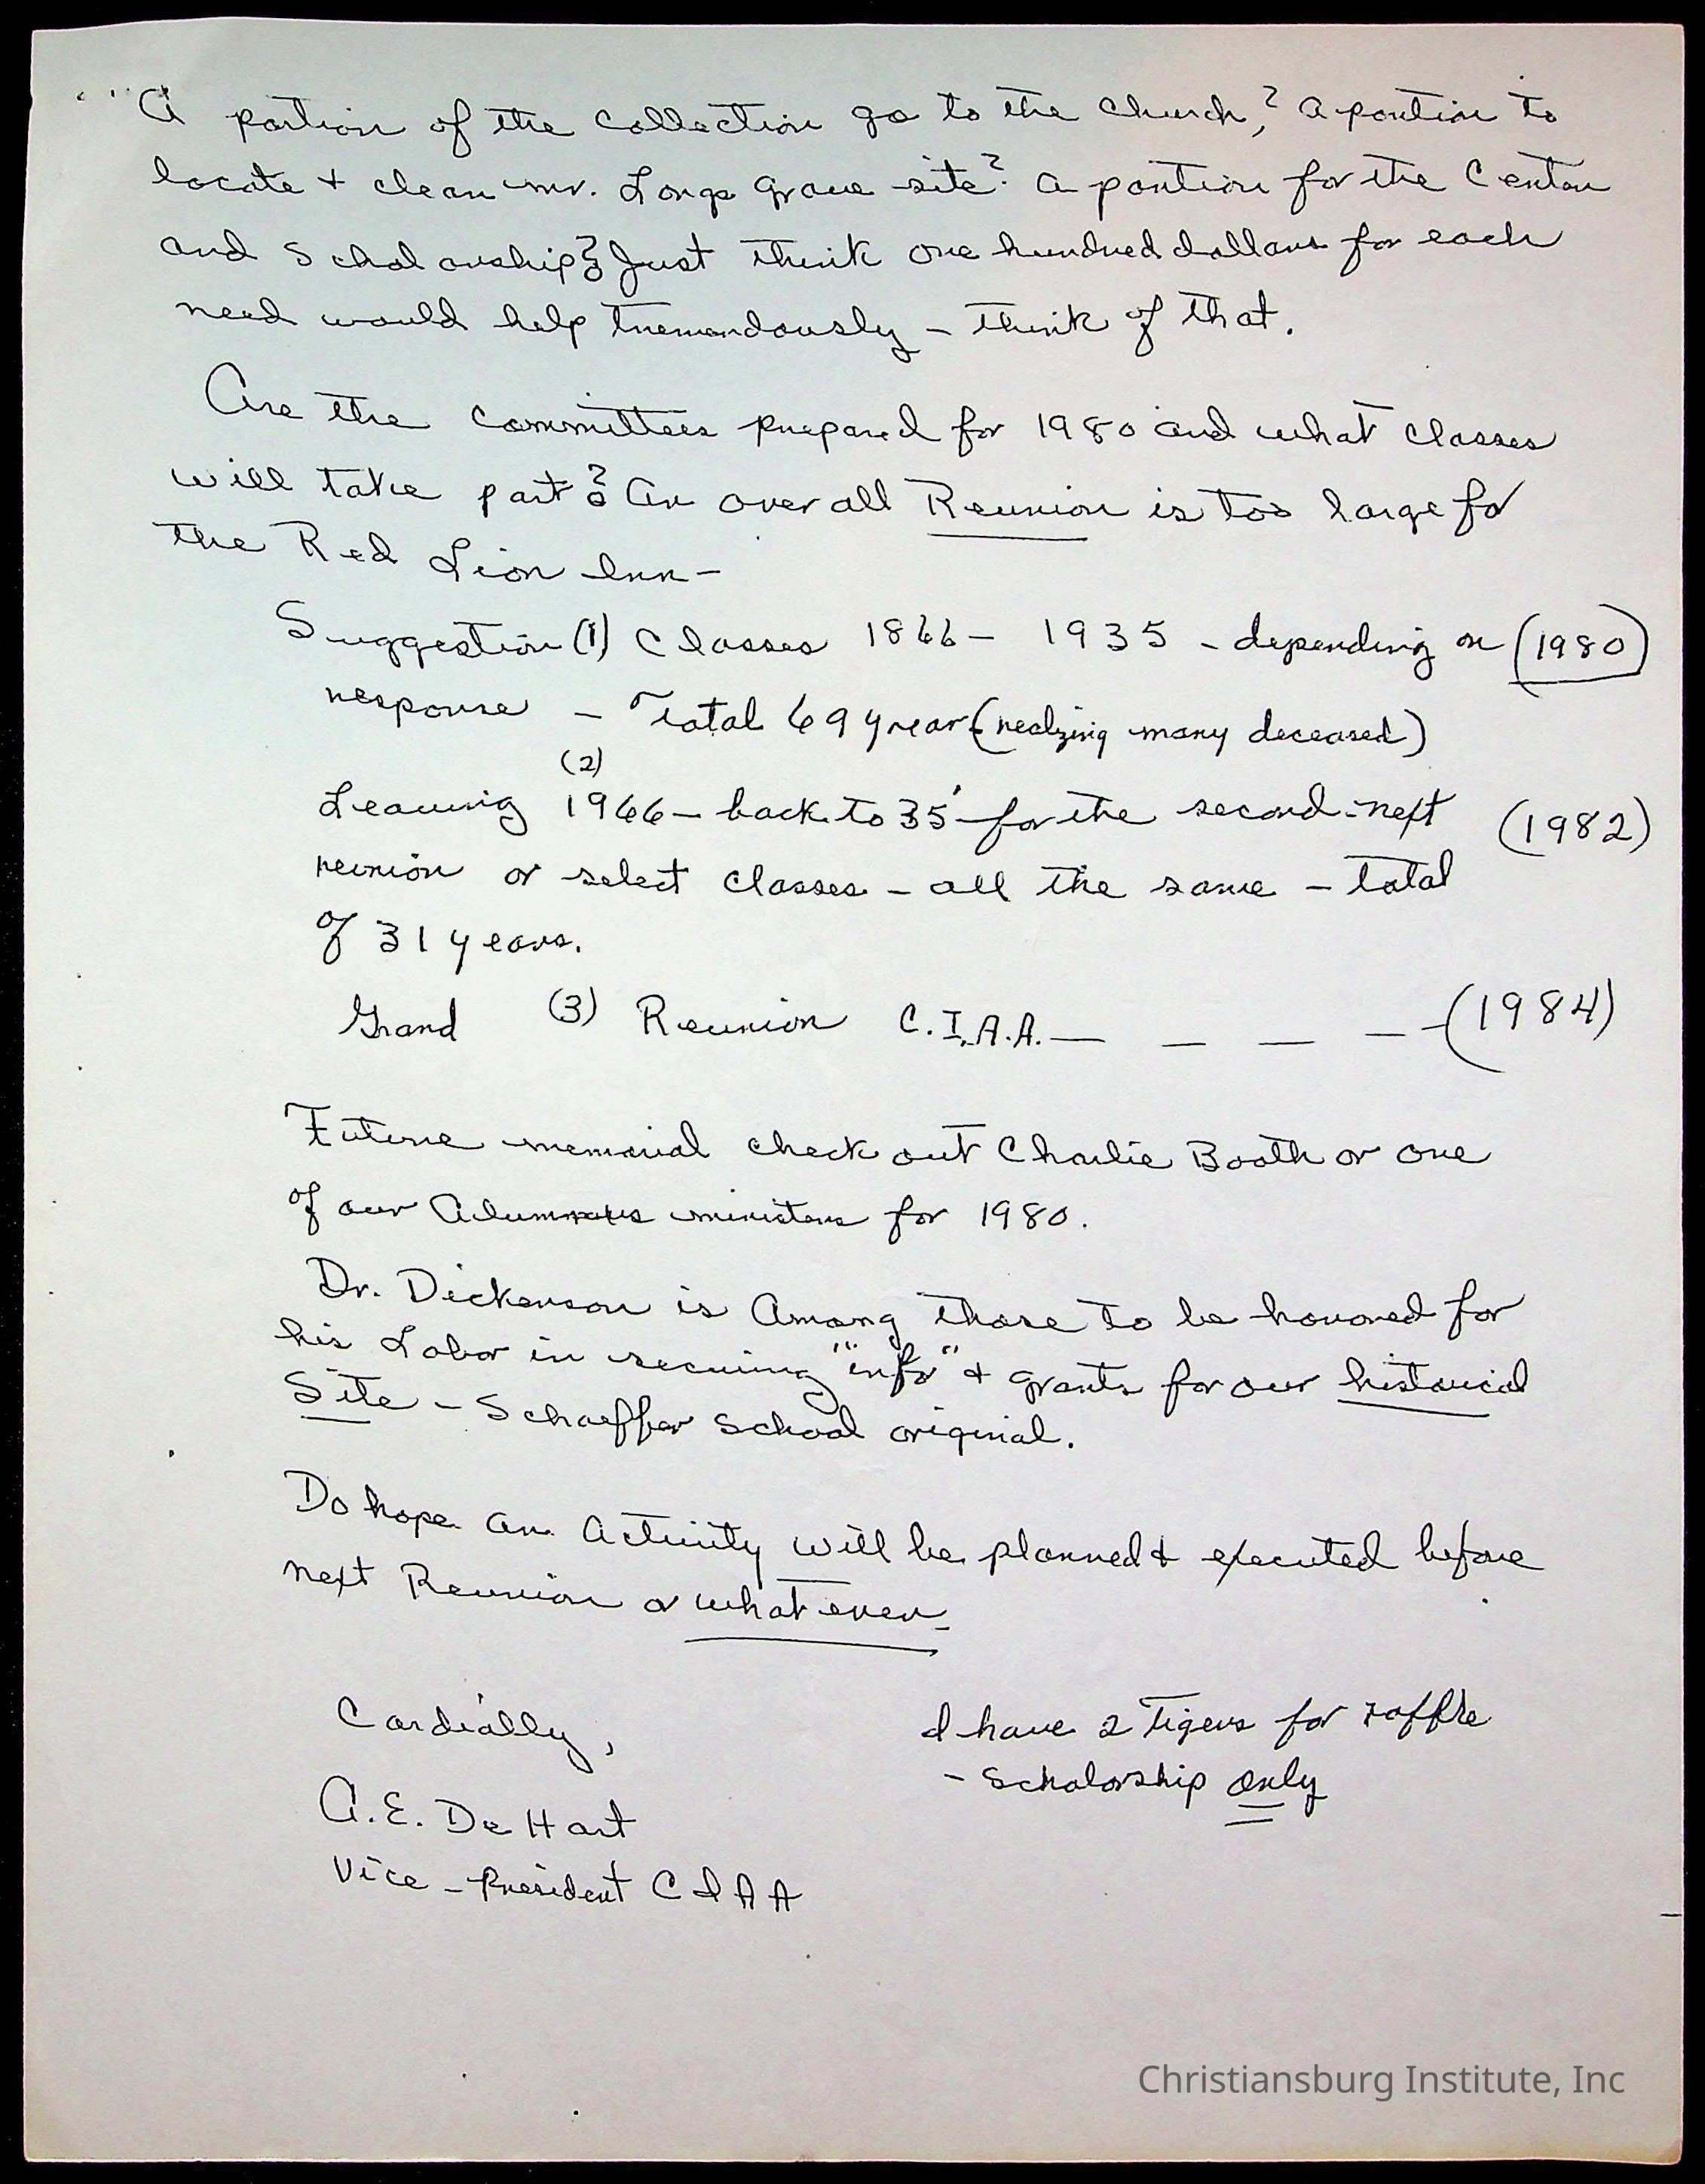 A portion of the collection go to the Church,? a portion to
locate + clean mr. Longs grave site? a portion for the Center
and Scholarship? Just think one hundred dollars for each
need would help tremendously - think of that.
Are the Committees prepared for 1980 and what classes
will take part? An over all Reunion is too large for
the Red Lion Inn-
Suggestion (1) Classes 1866 - 1935 - depending on (1980)
response - Total 69 year (realizing many deceased)
(2)
Leaving 1966 - back to 35' for the second-next (1982)
reunion or select classes - all the same - total
of 31 years.
Grand (3) Reunion C.I.A.A. — — — — (1984)
Future memorial check out Charlie Booth or one
of our Alumnus ministers for 1980.
Dr. Dickerson is Among those to be honored for
his Labor in securing "info" + grants for our historical
Site - Schaeffer School original.
Do hope an Activity will be planned + executed before
next Reunion or what ever.
Cordially,
A.E. De Hart
Vice - President C I A A
I have 2 Tigers for raffle
- Scholarship only
Christiansburg Institute, Inc